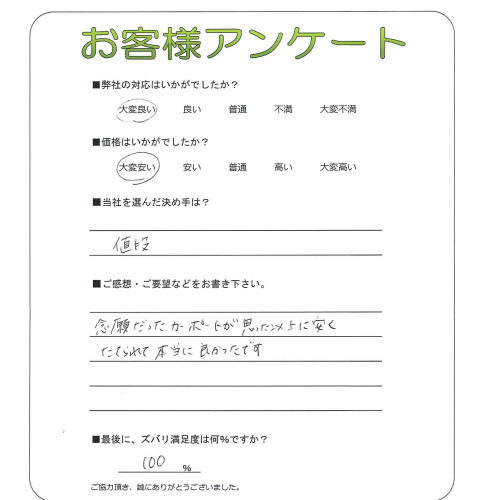 お客様アンケート
■弊社の対応はいかがでしたか?
大変良い 良い 普通 不満 大変不満
■価格はいかがでしたか?
大変安い 安い 普通 高い 大変高い
■当社を選んだ決め手は?
値段
■ご感想・ご要望などをお書き下さい。
念願だったカーポートが思った以上に安く
たてられて本当に良かったです
■最後に、ズバリ満足度は何%ですか?
100 %
ご協力頂き、誠にありがとうございました。